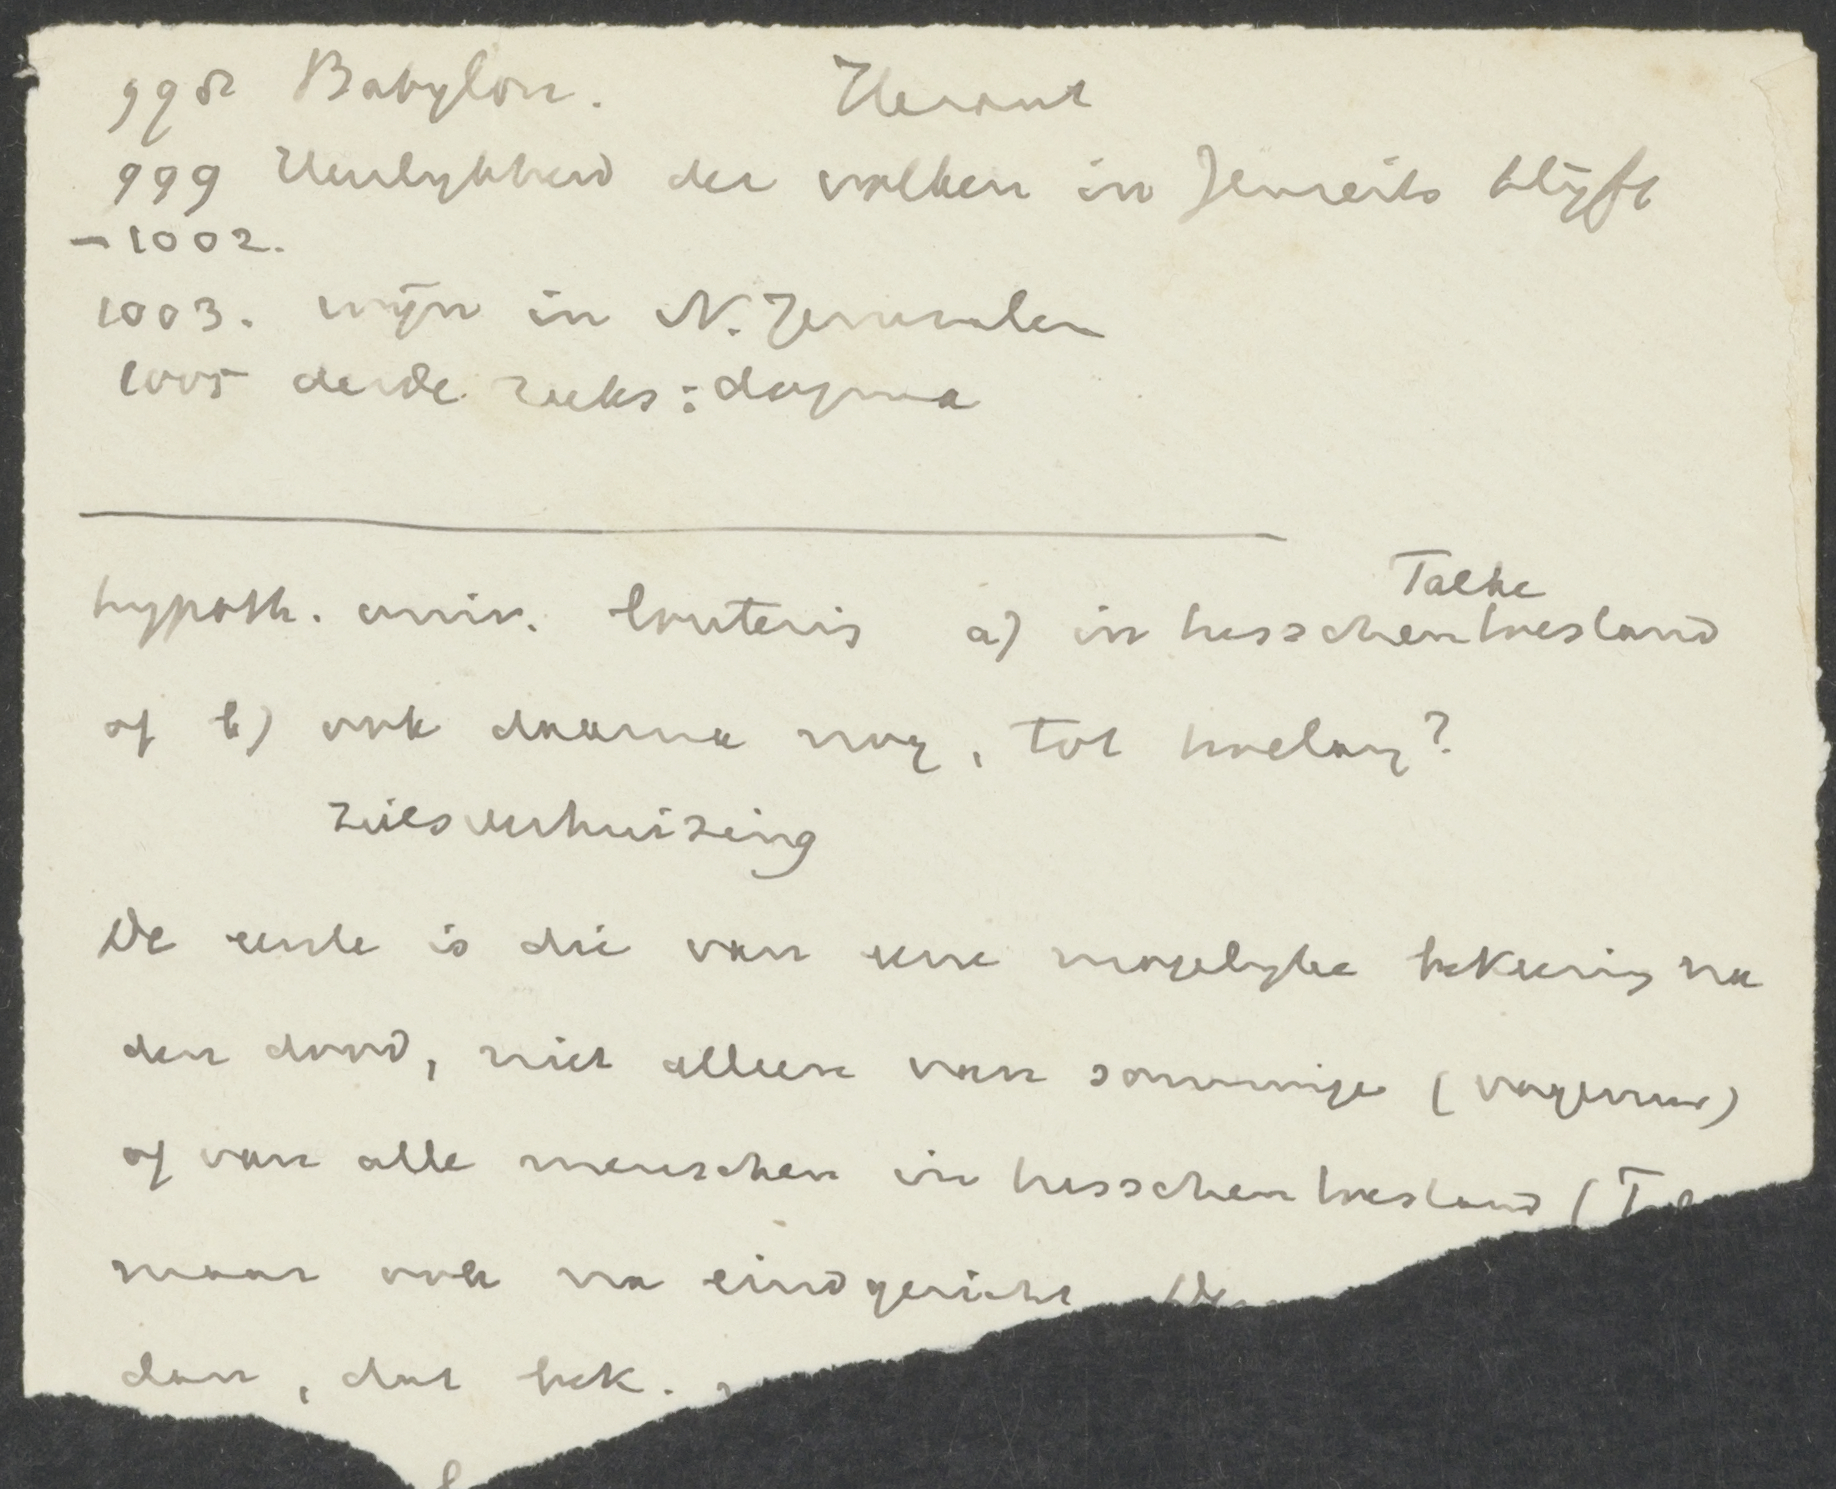 998 Babylon. Heraut
999 Heerlykheid der volken in Jenseits blijft
- 1002.
1003. wijn in N. Jerusalem
1005 derde reeks: dogma
Talbe
hypoth. univ. louteris a) in tusschentoesland
of b) ook daarna nog, tot hoelang?
zielsverhuizing
De eerste is die van eene mogelyke bekeering na
den dood, niet alleen van sommige (vagevuur)
of van alle menschen in tusschentoesland (
maar ook na eindgericht
dan, dat bek.